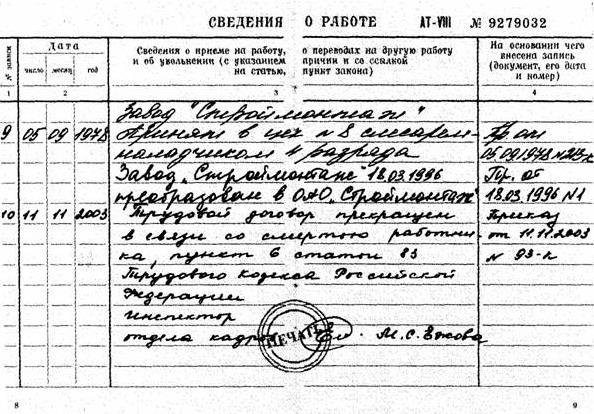 СВЕДЕНИЯ О РАБОТЕ АТ-VIII № 9279032
№ записи Дата Сведения о приеме на работу, о переводах на другую работу На основании чего
число месяц год и об увольнении (с указанием причин и со ссылкой внесена запись
на статью, пункт закона) (документ, его дата
и номер)
1 2 3 4
Завод "Строймонтаж"
9 05 09 1978 Принят в цех № 8 слесарем- Пр. от
наладчиком 4 разряда 05.09.1978 № 213-к
Завод "Строймонтаж" 18.03.1996 Пр. от
преобразован в ОАО "Строймонтаж" 18.03.1996 №1
10 11 11 2003 Трудовой договор прекращен Приказ
в связи со смертью работни- от 11.11.2003
ка, пункт 6 статьи 83 № 93-к
Трудового кодекса Российской
Федерации
инспектор
отдела кадров М.С. Ежова
ПЕЧАТЬ
8 9